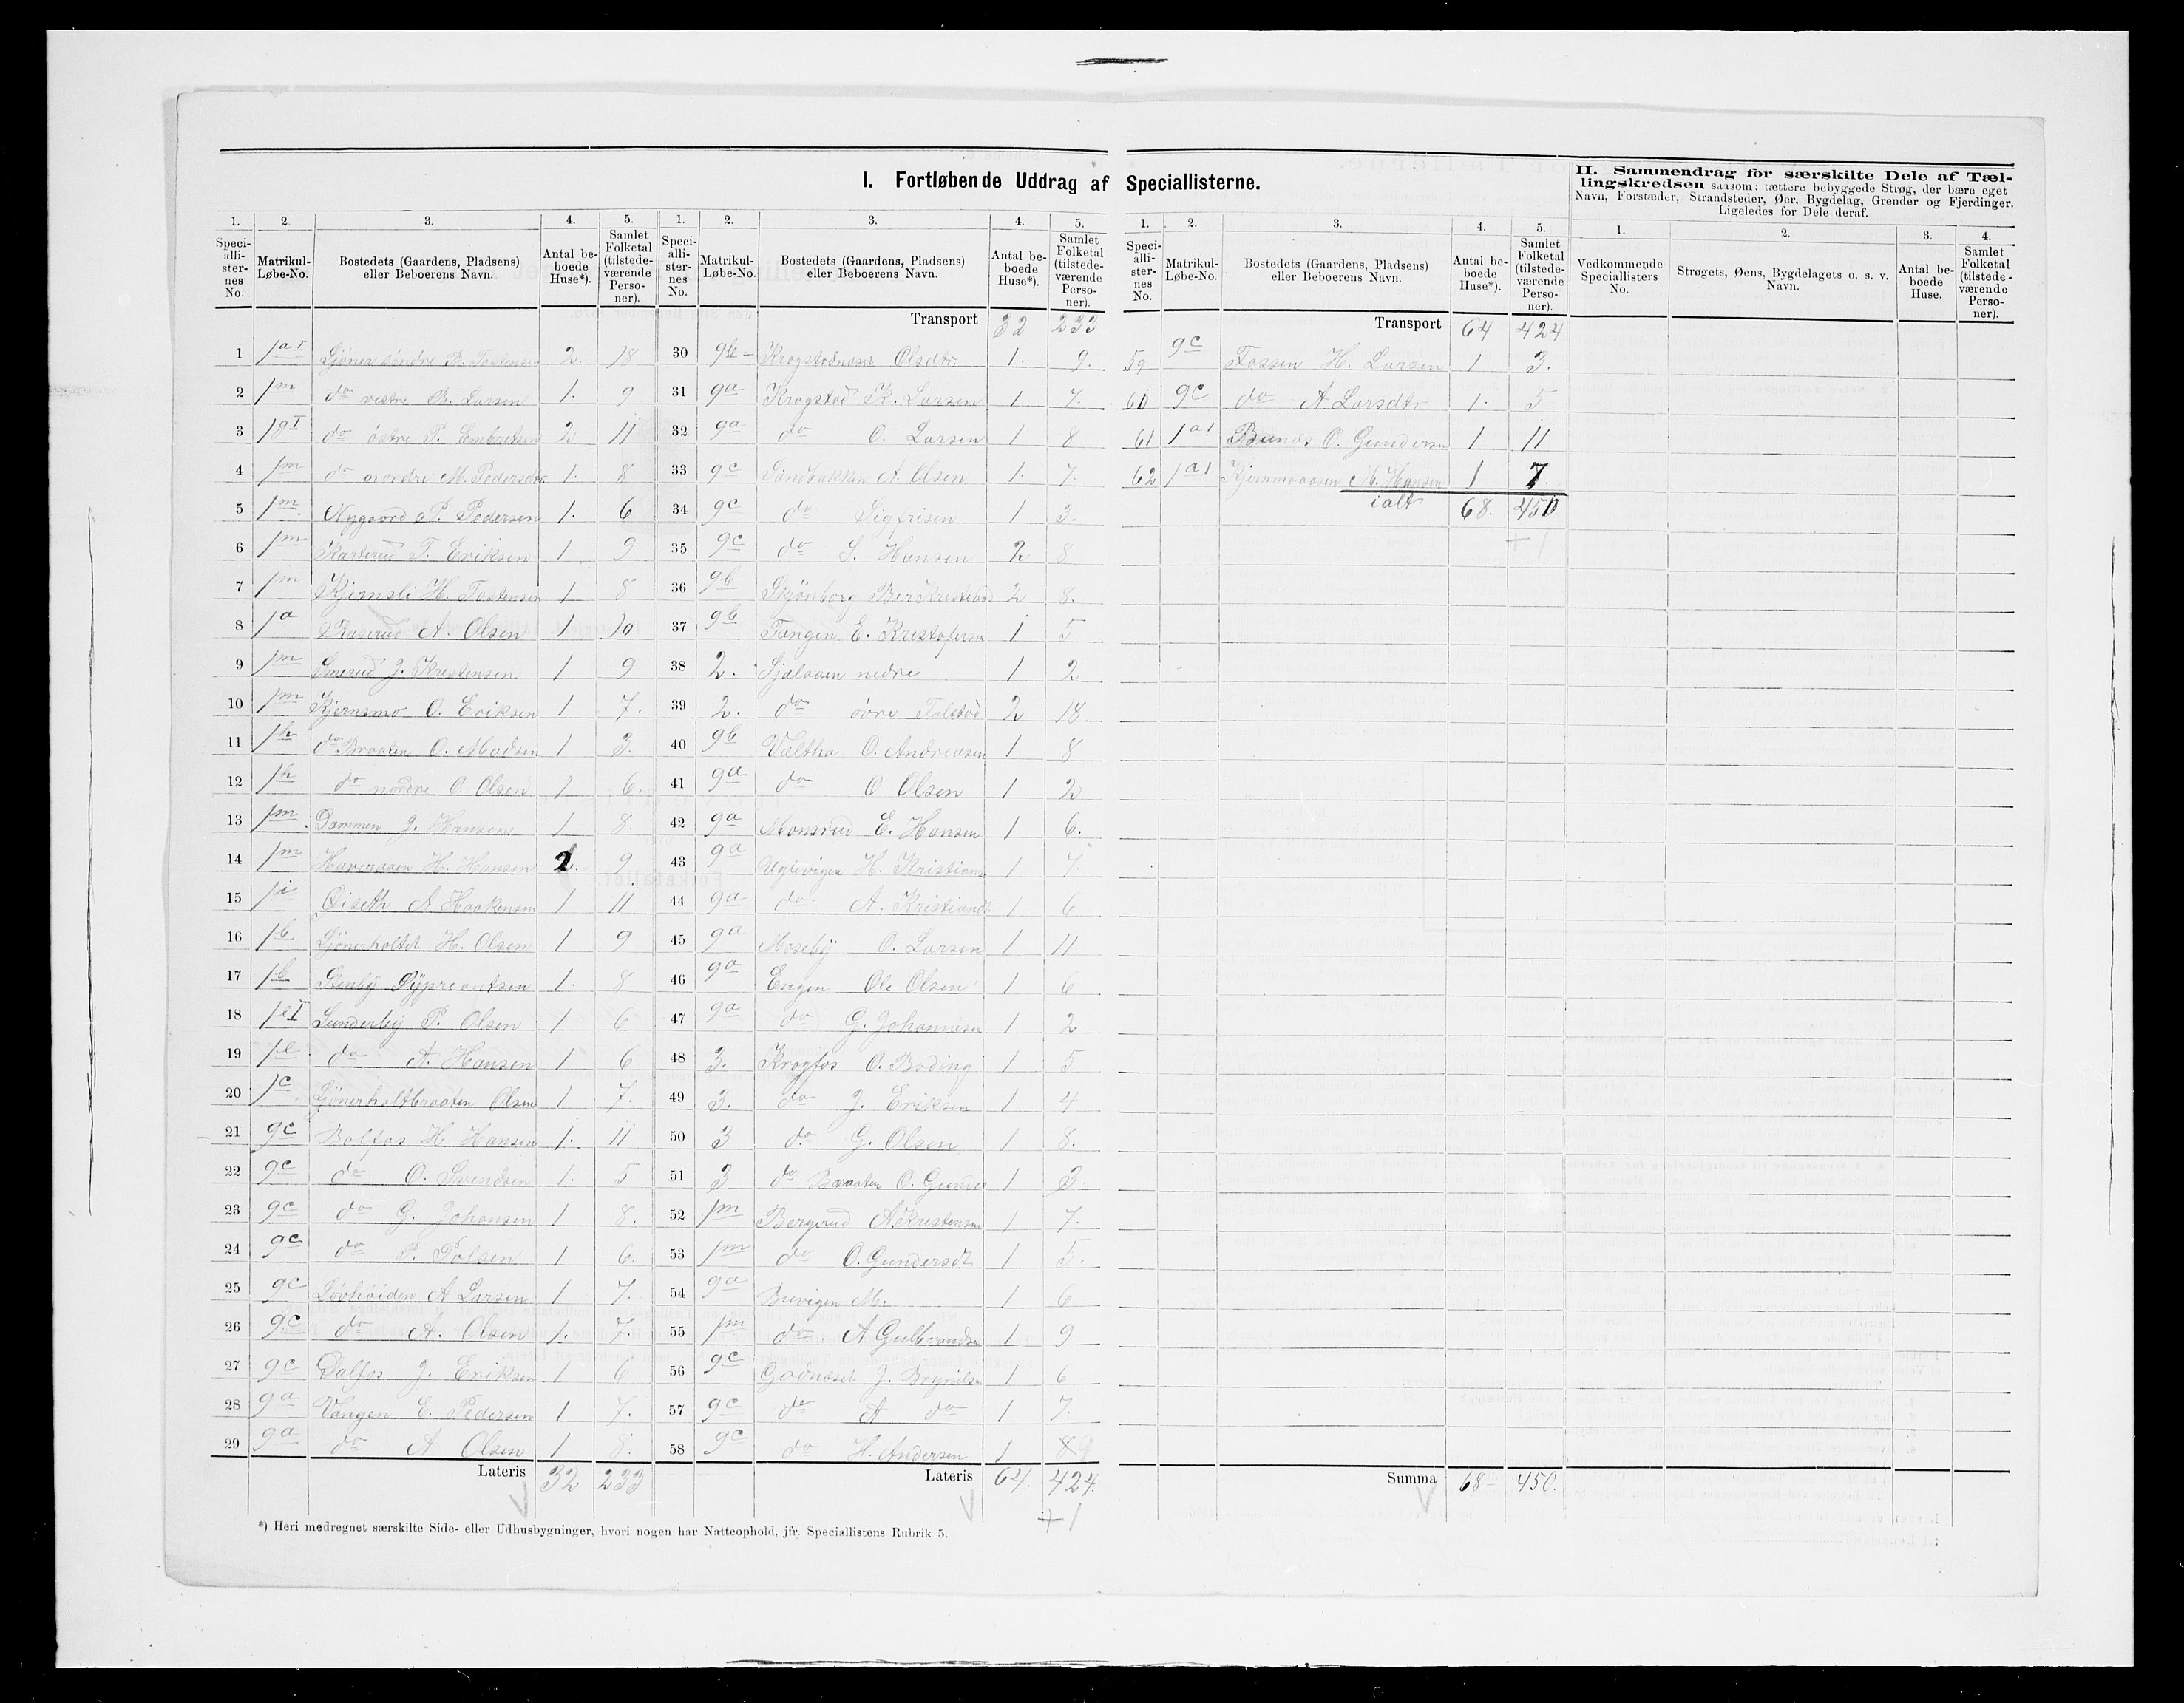 I. Fortløbende Uddrag af Speciallisterne.
II. Sammendrag for særskilte Dele af Tæl-
lingskredsen saasom: tættere bebyggede Strøg, der bære eget
Navn, Forstæder, Strandsteder, Øer, Bygdelag, Grender og Fjerdinger.
Ligeledes for Dele deraf.
1. 2. 3. 4. 5. 1. 2. 3. 4. 5.
Speci-alli-ster-nes No. Matrikul-Løbe-No. Bostedets (Gaardens, Pladsens) eller Beboerens Navn. Antal be-boede Huse*). Samlet Folketal (tilstede-værende Perso-ner).
Speci-alli-ster-nes No. Matrikul-Løbe-No. Bostedets (Gaardens, Pladsens) eller Beboerens Navn. Antal be-boede Huse*). Samlet Folketal (tilstede-værende Perso-ner).
Transport 32 233
1 1aI Gjöner söndre B. Tostensen 2. 18
2 1m do vestre B. Larsen 1. 9
3 1gI do östre P. Embretsen 2 11
4 1m do nordre M. Pedersdtr. 1. 8
5 1m Nygaard P. Pedersen 1. 6
6 1m T. Eriksen 1 9
7 1m Kjernsli H. Tostensen 1 8
8 1a A. Olsen 1 10
9 1m Smerud J. Kristensen 1 9
10 1m Kjernsmo O. Eriksen 1 7.
11 1h do Braaten O. Madsen 1 3.
12 1h do nordre O. Olsen 1 6.
13 1m Dammen J. Hansen 1 8.
14 1m Haveraaen H. Hansen 2. 9
15 1i Öiseth A Haakensen 1 11
16 1b. Gjönerholtet H. Olsen 1 9
17 1b Stenby 1. 8
18 1eI Sunderby P. Olsen 1 6
19 1e do A. Hansen 1 6
20 1c Gjönerholtbraaten Olsen 1 7.
21 9c Bolfos H Hansen 1. 11
22 9c do O. Svendsen 1. 5
23 9c do G. Johansen 1 8.
24 9c do P. Polsen 1 6.
25 9c Lövhöiden A Larsen 1 7.
26 9c do A. Olsen 1. 7.
27 9c Dalfos J. Eriksen 1 6
28 9a Vangen E. Pedersen 1 7.
29 9a do A Olsen 1 8.
Lateris 32 233
30 9b Krogstadnæset Olsdtr. 1. 9.
31 9a Krogstad K. Larsen 1 7.
32 9a do O. Larsen 1 8
33 9c Sandbakken A. Olsen 1. 7.
34 9c do Sigfrisen 1 3.
35 9c do S. Hansen 2 8
36 9b Skjönborg 2 8.
37 9b Tangen E. Kristofersen 1 5
38 2. Sjølaaen nedre 1 2
39 2. do övre 2 18.
40 9b Væltha O. Andreasen 1 8
41 9a do O Olsen 1 2
42 9a Monsrud E. Hansen 1 6.
43 9a Uglevigen H. Kristians 1 7.
44 9a do A. Kristiands 1 6
45 9a Moseby O. Larsen 1 11
46 9a Engen Ole Olsen 1 6
47 9a do G. Johannesen 1 2
48 3. Krogfos O. Boding 1 5
49 3. do J. Eriksen 1 4
50 3 do G. Olsen 1 8.
51 3 do Braaten O. Gunder 1 3.
52 1m Bergerud A. Kristensen 1 7.
53 1m do O. Gundersdt 1 5.
54 9a Buvigen M. 1 6
55 1m do A Gulbrandsen 1 9
56 9c Gadnæset J. Brynilsn 1 6
57 9c do A do 1 7.
58 9c do H. Andersen 1 8 9
Lateris 64. 424.
+1
1. 2. 3. 4. 5.
Speci-alli-ster-nes No. Matrikul-Løbe-No. Bostedets (Gaardens, Pladsens) eller Beboerens Navn. Antal be-boede Huse*). Samlet Folketal (tilstede-værende Perso-ner).
Transport 64 424
59 9c Fossen H. Larsen 1 3.
60 9c do A Larsdtr 1. 5
61 1a1 O. Gundersen 1 11
62 1a1 Kjernmoasen M. Hansen 1 7.
ialt 68. 450
+1
Summa 68 450.
1. 2. 3. 4.
Vedkommende Speciallisters No. Strøgets, Øens, Bygdelagets o. s. v. Navn. Antal be-boede Huse. Samlet Folketal (tilstede-værende Perso-ner).
*) Heri medregnet særskilte Side- eller Udhusbygninger, hvori nogen har Natteophold, jfr. Speciallistens Rubrik 5.